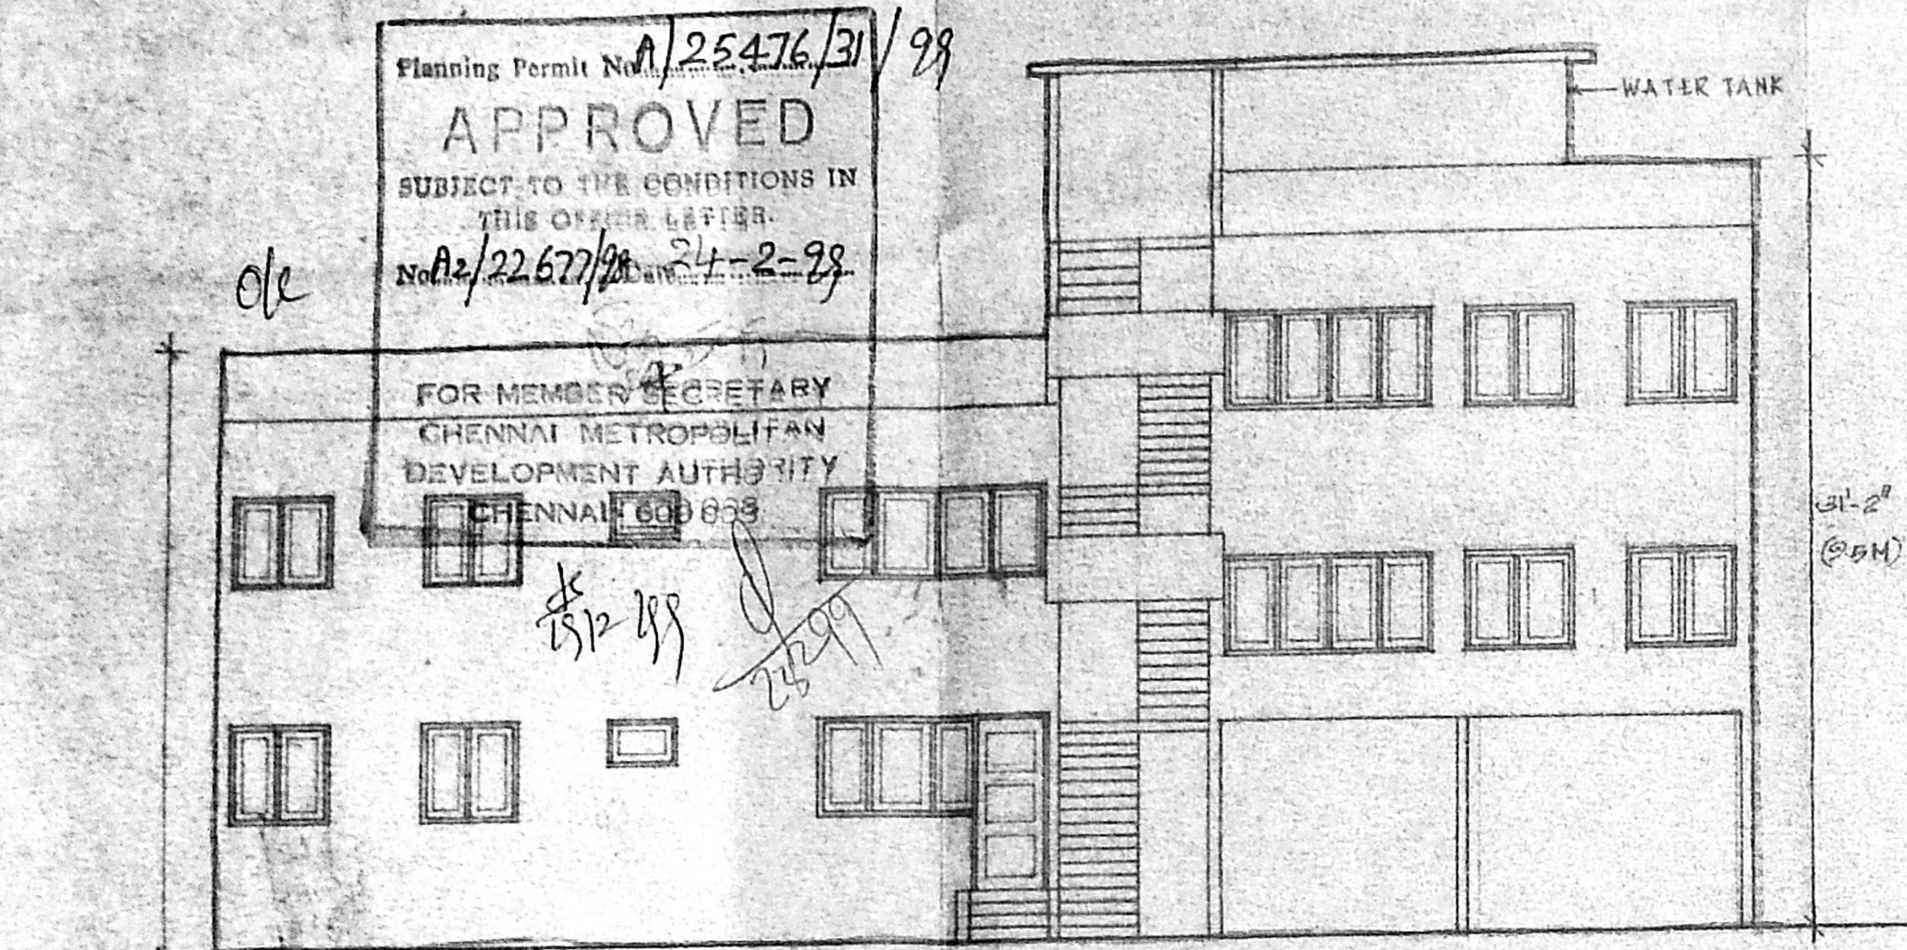 Planning Permit No. A/25476/31/99
APPROVED
SUBJECT TO THE CONDITIONS IN
THIS OFFICE LETTER.
No. A2/22677/98 Date 24-2-99
FOR MEMBER SECRETARY
CHENNAI METROPOLITAN
DEVELOPMENT AUTHORITY
CHENNAI 600 008
WATER TANK
31'-2"
(9.5M)